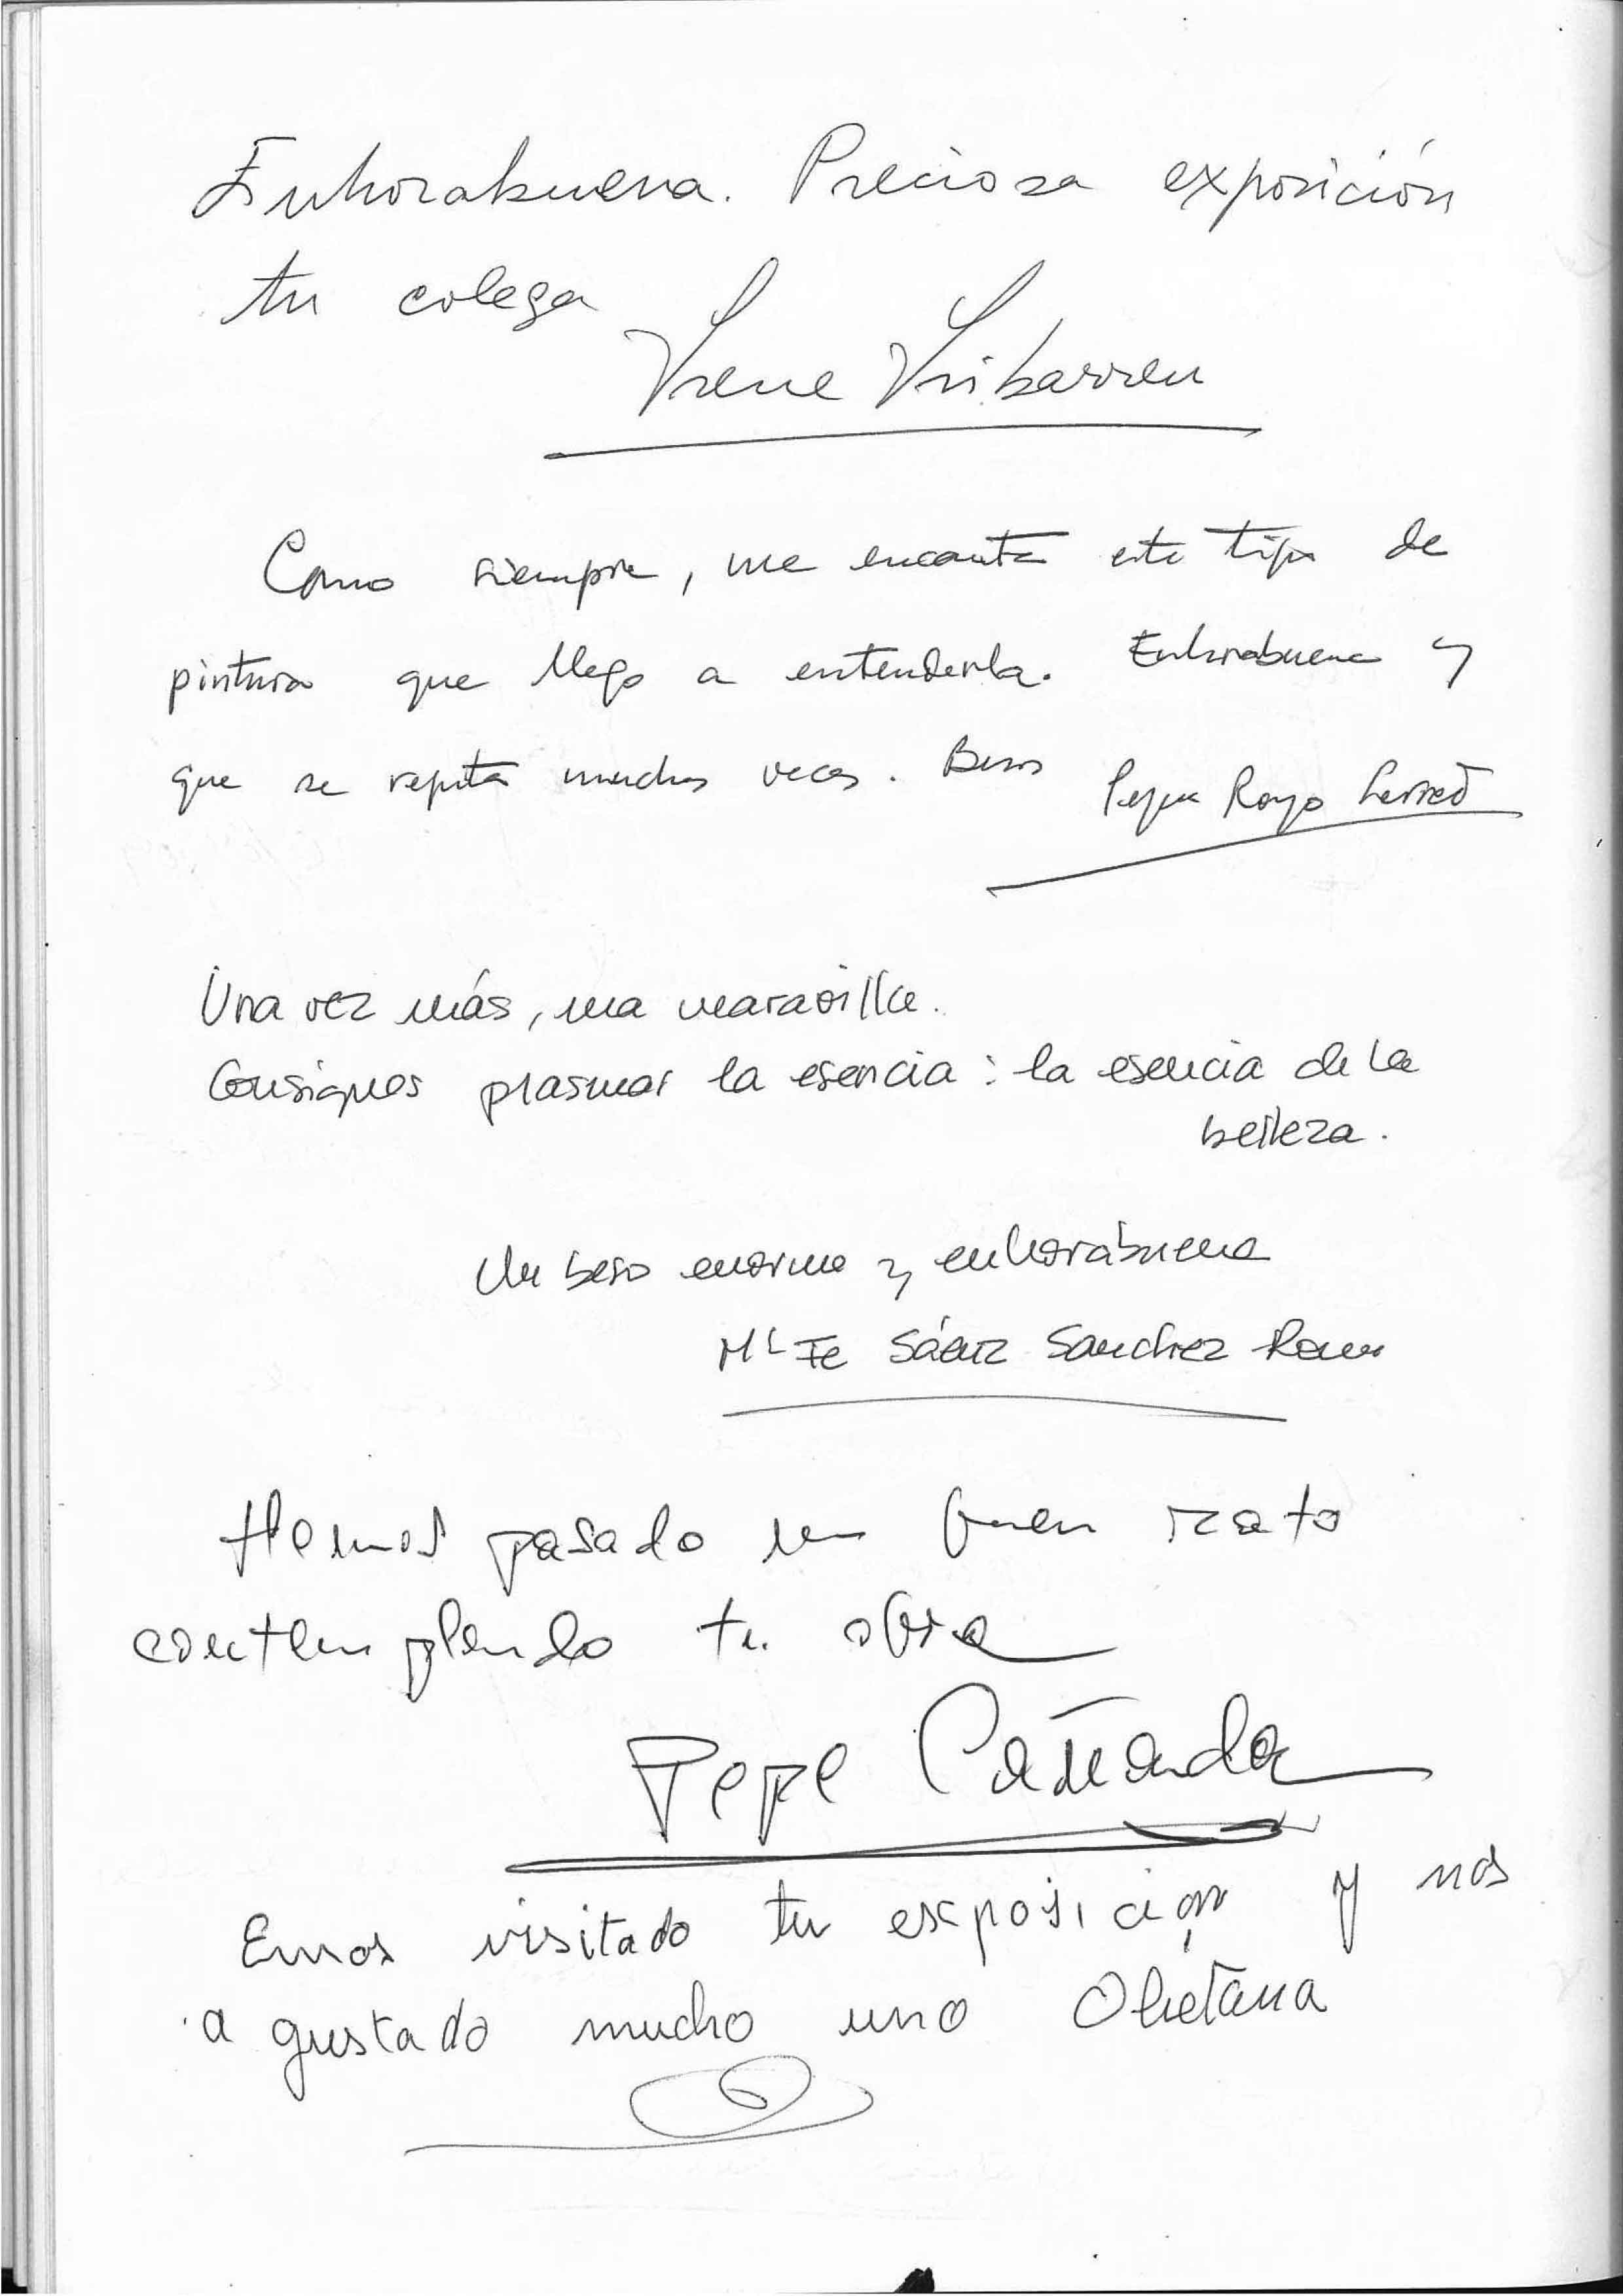 Enhorabuena. Preciosa exposición
tu colega
Irene Iribarren
Como siempre, me encanta este tipo de
pintura que llego a entenderla. Enhorabuena y
que se repita muchas veces. Besos Pepa Royo
Una vez más, una maravilla.
Consigues plasmar la esencia: la esencia de la
belleza.
Un beso enorme y enhorabuena
Mª Fe Sáenz Sanchez
Hemos pasado un buen rato
contemplando tu obra
Pepe Cañada
Emos visitado tu exposición y nos
a gustado mucho uno